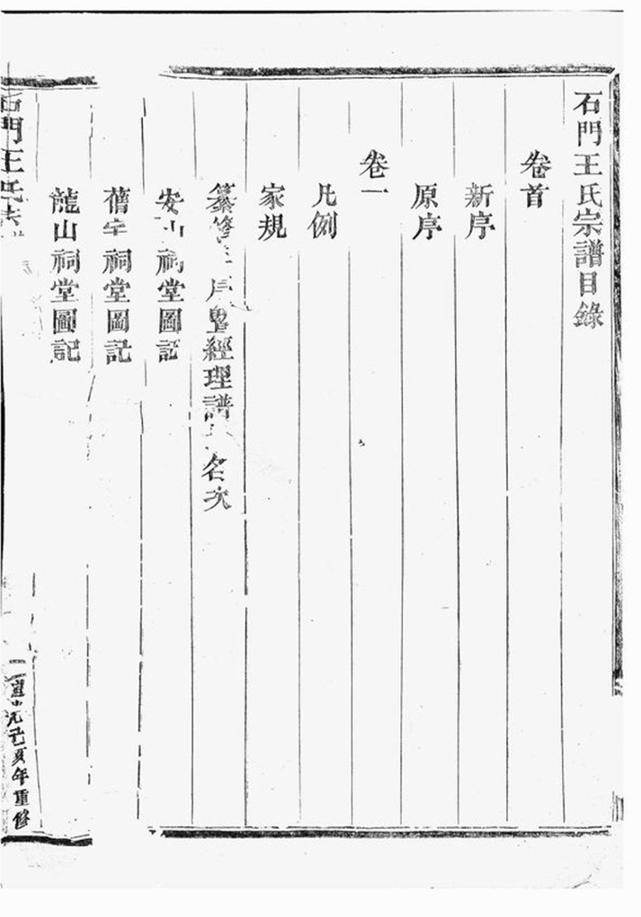 石門王氏宗譜目錄
卷首
新序
原序
卷一
凡例
家規
纂修 經理譜 名次
安山祠堂圖記
舊宅祠堂圖記
龍山祠堂圖記
石門王氏宗譜
道光己亥年重修